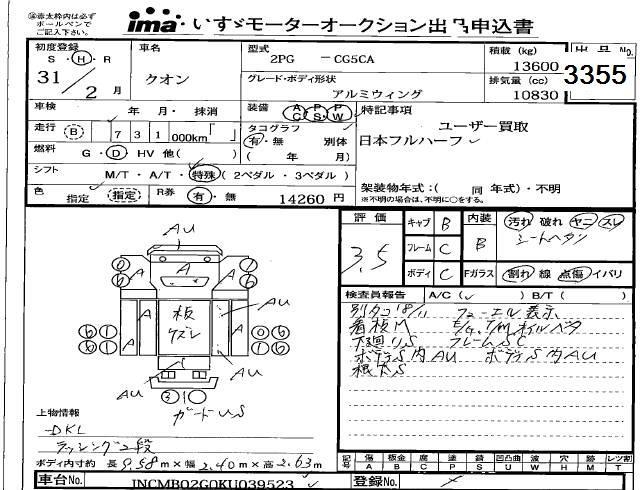 ※赤太枠内は必ず
ボールペンで
ご記入下さい。
ima いすゞモーターオークション出品申込書
初度登録
S ・ H ・ R
31 / 2 月
車名
クオン
型式
2PG - CG5CA
グレード・ボディ形状
アルミウィング
積載 (kg)
13600
排気量 (cc)
10830
出品No.
3355
車検
年 月・ 抹消
装備 AC PS PW
走行 B 731 000km
タコグラフ
有・無 別体
( 年 月)
燃料 G ・ D ・ HV 他( )
シフト M/T ・ A/T ・ 特殊 ( 2ペダル ・ 3ペダル )
色 指定 (指定) R券 有 ・ 無 14260 円
特記事項
ユーザー買取
日本フルハーフ
架装物年式:( 同 年式)・不明
※不明の場合は、不明に○をする。
評価
3.5
キャブ B
フレーム C
ボディ C
内装 B
汚れ 破れ ヤニ スレ
シートヘタリ
Fガラス 割れ 線 点傷 イバリ
検査員報告 A/C ( ) B/T ( )
別タコ'18/11 フューエル表示
看板M
下廻りS フレームSC
ボディS内AU ボディS内AU
根太S
AU
A
板
ズレ
AU
AU
AU
ガードUS
上物情報
DKL
ラッシング2段
ボディ内寸約 長 9.58 m × 幅 2.40 m × 高 2.63 m
記号 傷A 板金B 腐C 塗P 錆S 凹凸曲U 波W 穴H 跡M 止T レツ割
車台No. JNCMB02G0KU039523
登録No.